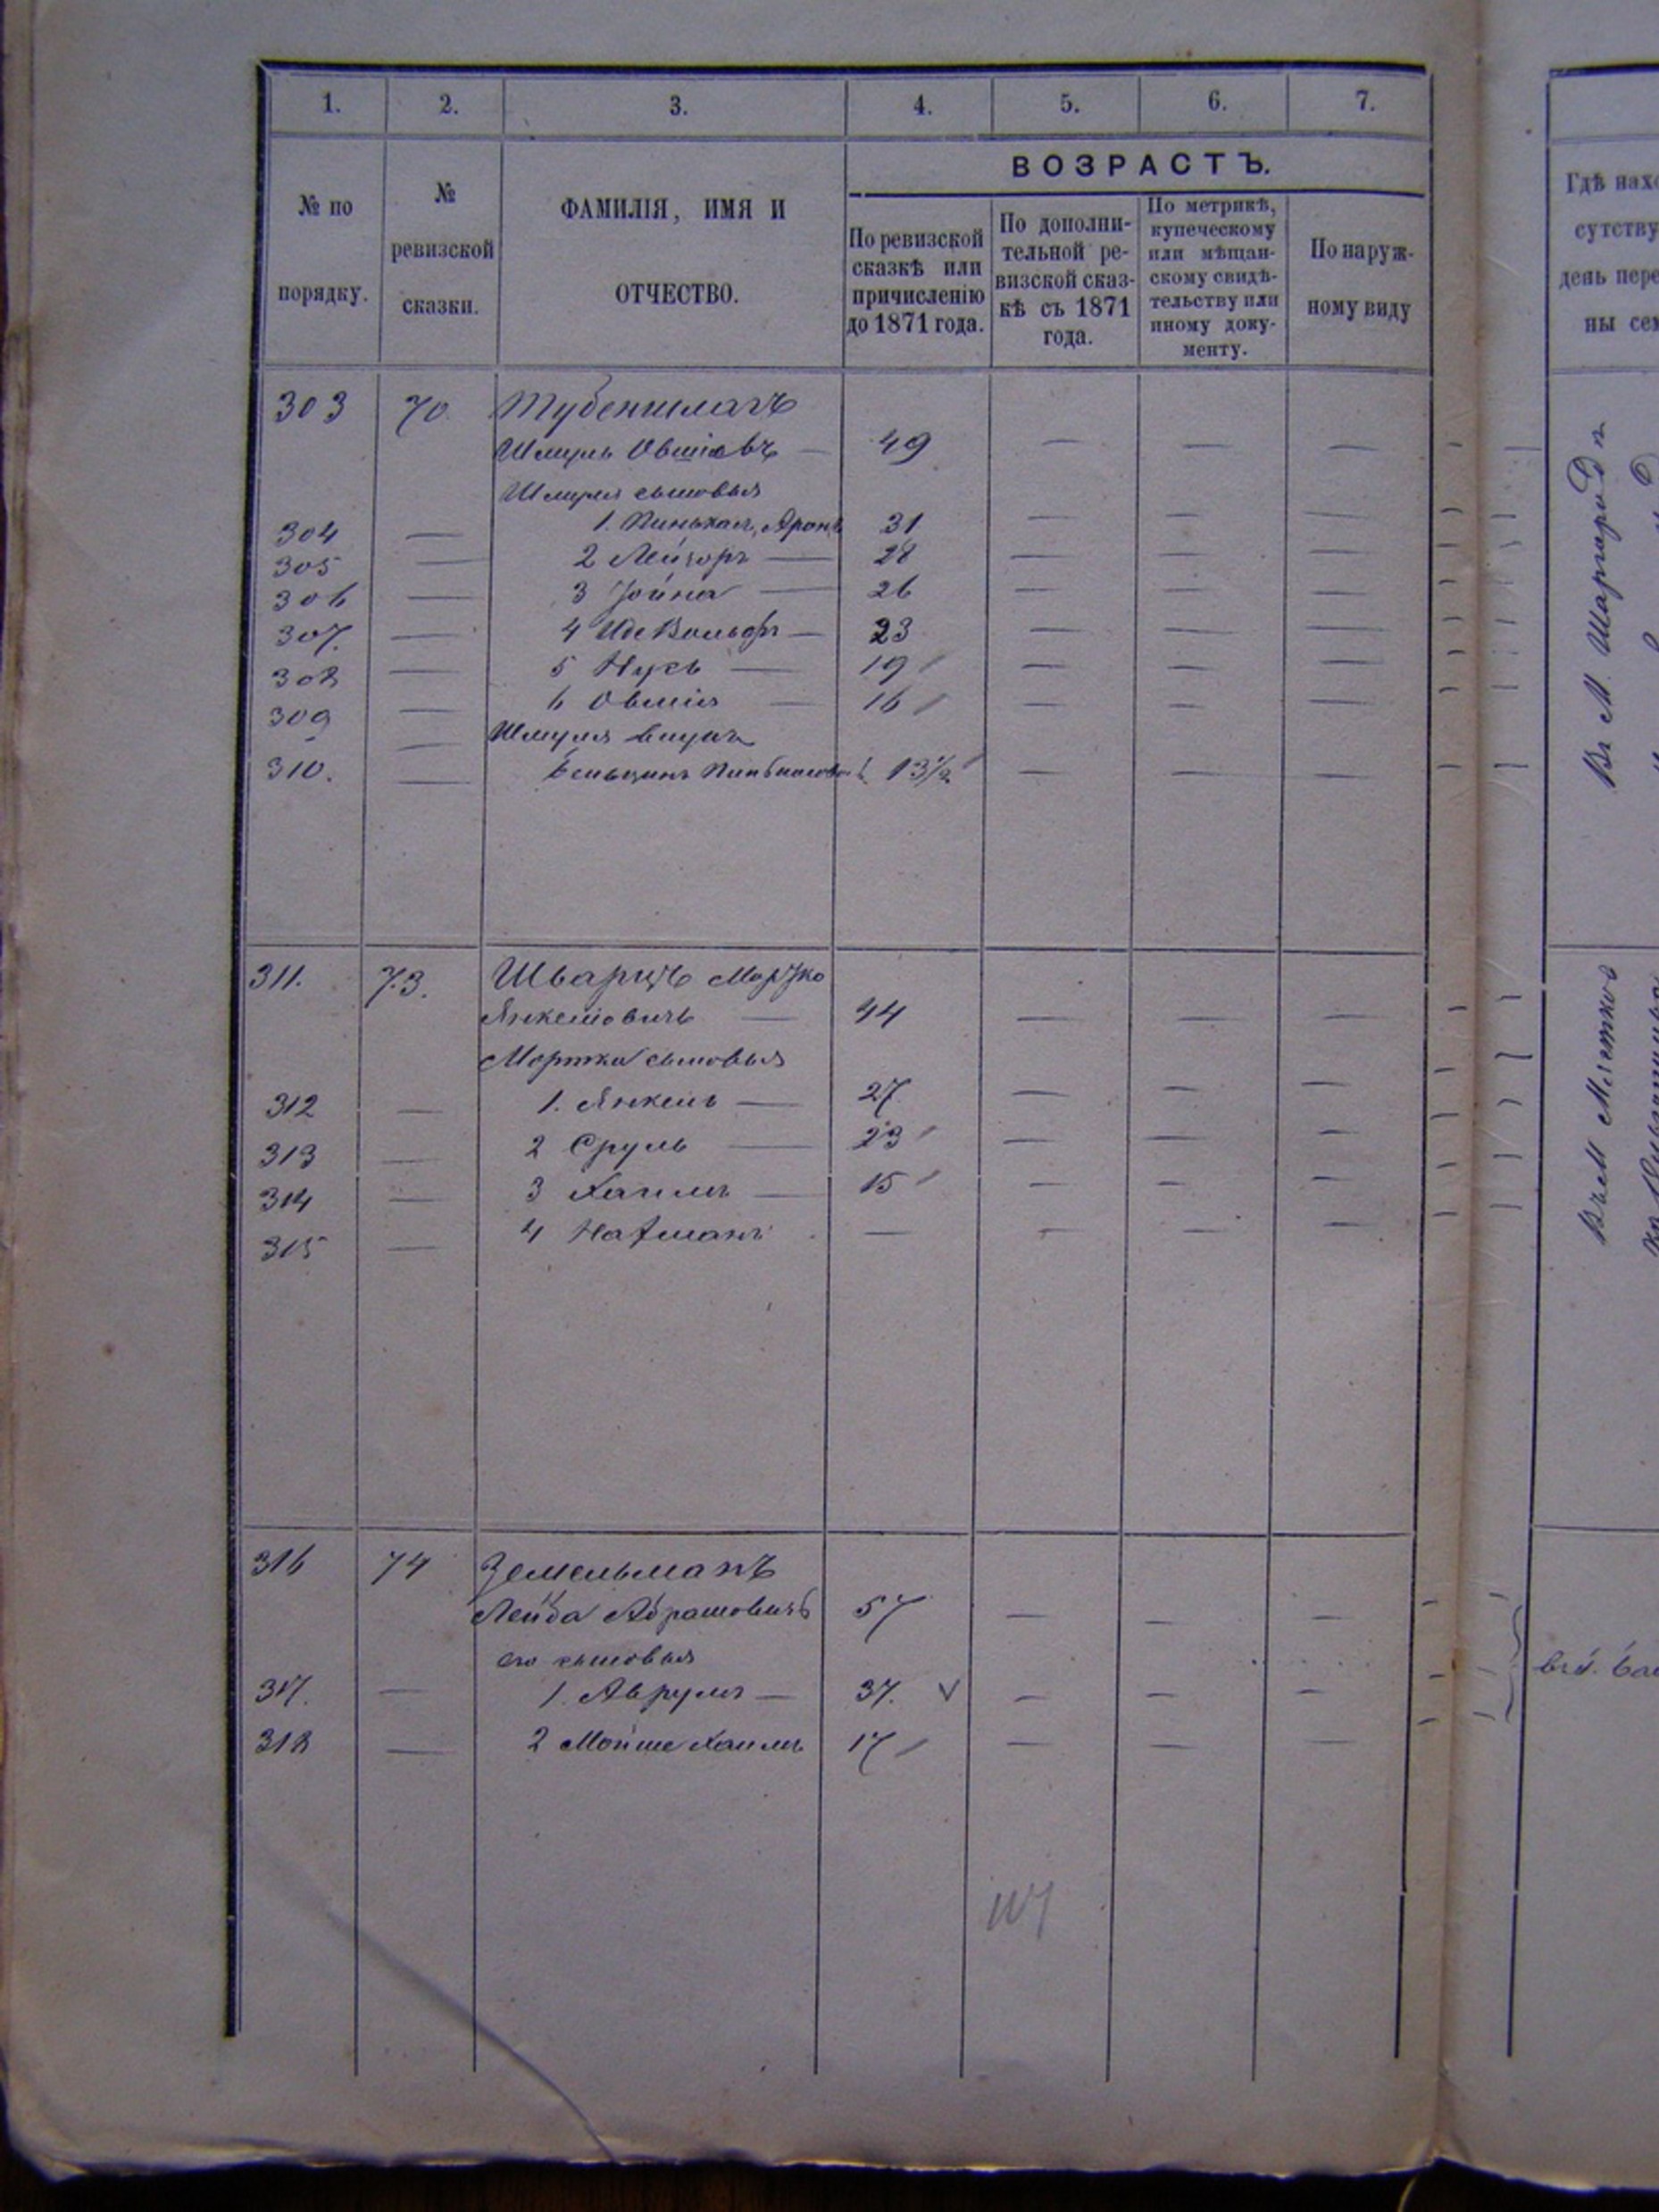 1. 2. 3. 4. 5. 6. 7.
ВОЗРАСТЪ.
№ по порядку.
№ ревизской сказки.
ФАМИЛІЯ, ИМЯ И ОТЧЕСТВО.
По ревизской сказкѣ или причисленію до 1871 года.
По дополнительной ревизской сказкѣ съ 1871 года.
По метрикѣ, купеческому или мѣщанскому свидѣтельству или иному документу.
По наружному виду
303 70
Шмуль 49 — — —
Шмуля сыновья
304 — 1. Аронъ 31 — — —
305 — 2 Лейзоръ — 28 — — —
306 — 3 Іойна — 26 — — —
307. — 4 Вольфъ — 23 — — —
308 — 5 Нусь — 19 — — —
309 — 6 Овшія — 16 — — —
Шмуля внукъ
310. — 13½ — — —
311. 73. Шварцъ Мортко
Янкелiовичъ — 44 — — —
Мортка сыновья
312 — 1. Янкель — 27 — — —
313 — 2 Сруль — 23 — — —
314 — 3 Хаимъ — 15 — — —
315 — 4 Нахманъ — — — —
316 74 Земельманъ
Лейба Абрамовичъ 57 — — —
его сыновья
317. — 1. Аврумъ — 37. — — —
318 — 2 Мойше Хаимъ 17 — — —
Гдѣ нахо
сутству
день пере
ны сем